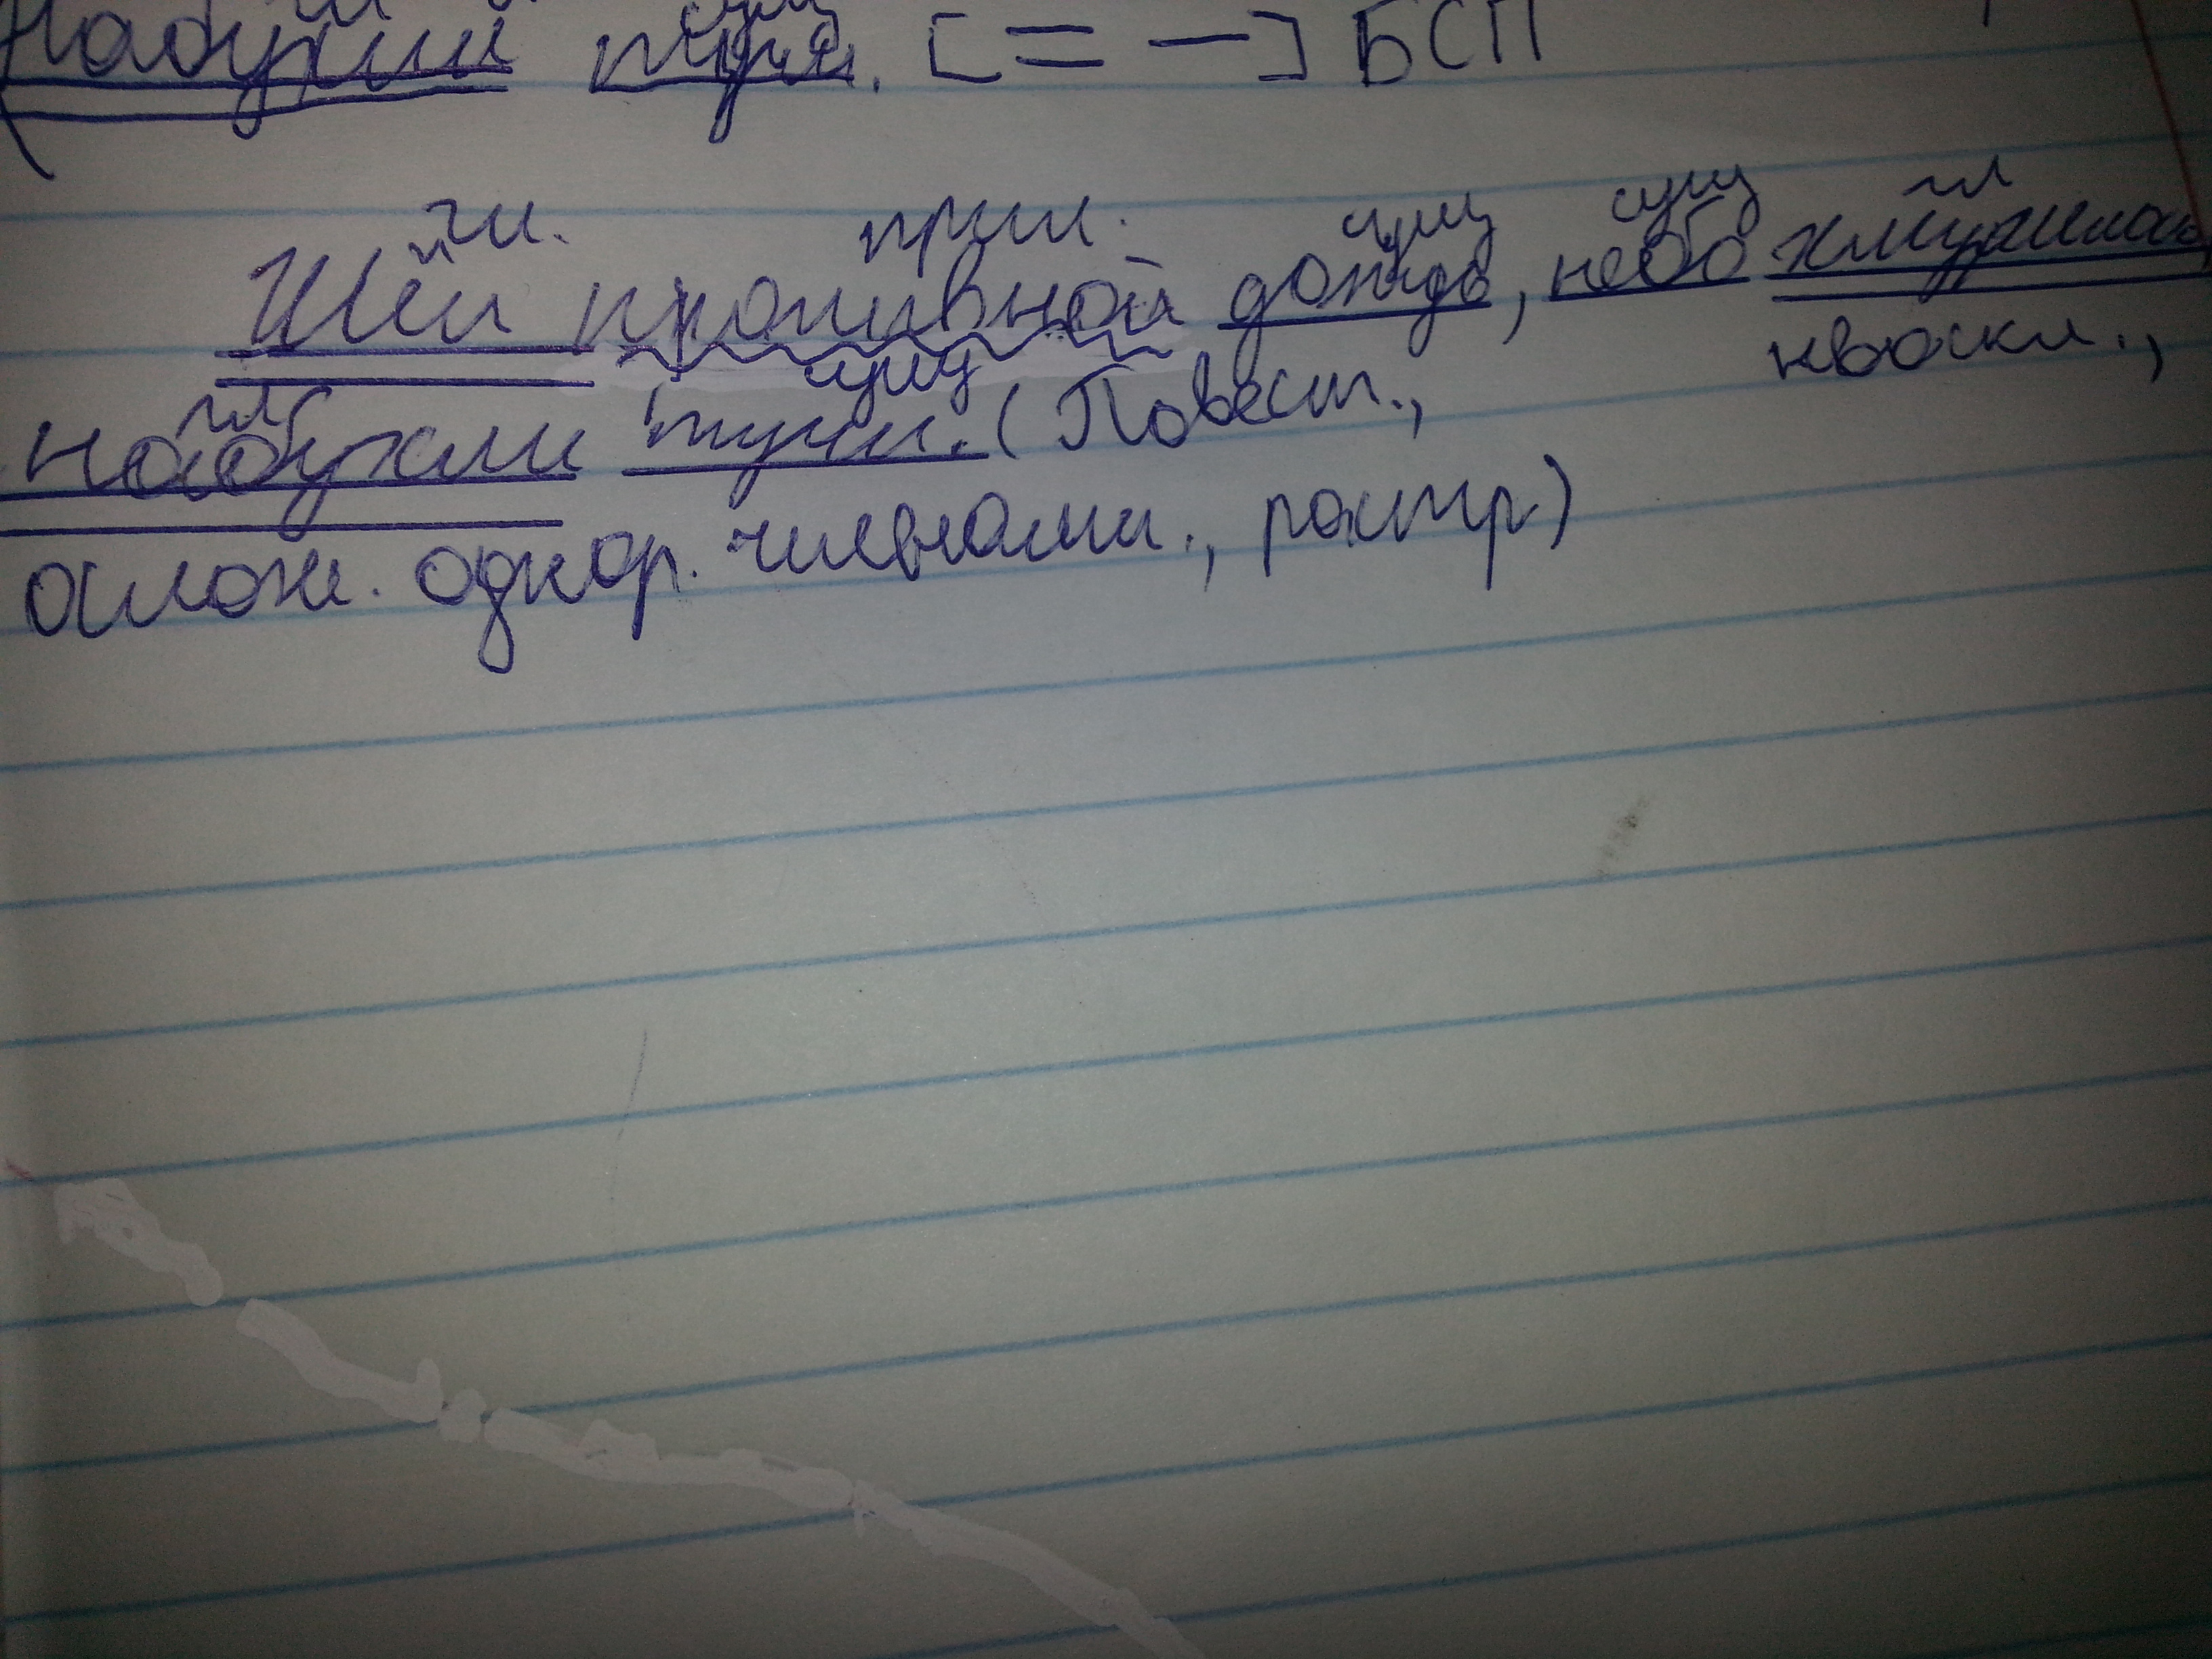 Набухли тучи. [= —] БСП
гл. прил. сущ сущ гл
Шёл проливной дождь, небо хмурилось,
гл сущ
набухли тучи. (Повест., нвоскл.,
ослож. однор. членами., распр)